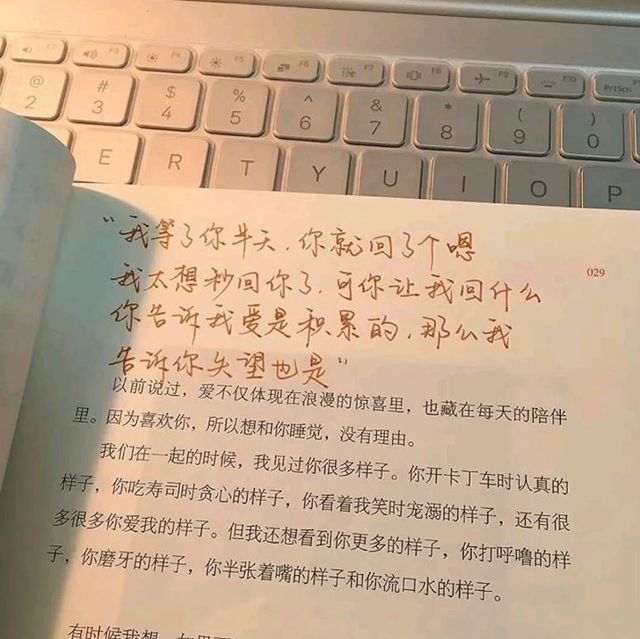 F2 F3 F4 F5 F6 F7 F8 F9 F10 PrtScn
@ # $ % ^ & * ( )
2 3 4 5 6 7 8 9 0
E R T Y U I O P
029
“我等了你半天，你就回了个嗯
我太想秒回你了，可你让我回什么
你告诉我爱是积累的，那么我
告诉你失望也是”
以前说过，爱不仅体现在浪漫的惊喜里，也藏在每天的陪伴
里。因为喜欢你，所以想和你睡觉，没有理由。
我们在一起的时候，我见过你很多样子。你开卡丁车时认真的
样子，你吃寿司时贪心的样子，你看着我笑时宠溺的样子，还有很
多很多你爱我的样子。但我还想看到你更多的样子，你打呼噜的样
子，你磨牙的样子，你半张着嘴的样子和你流口水的样子。
有时候我想，如果